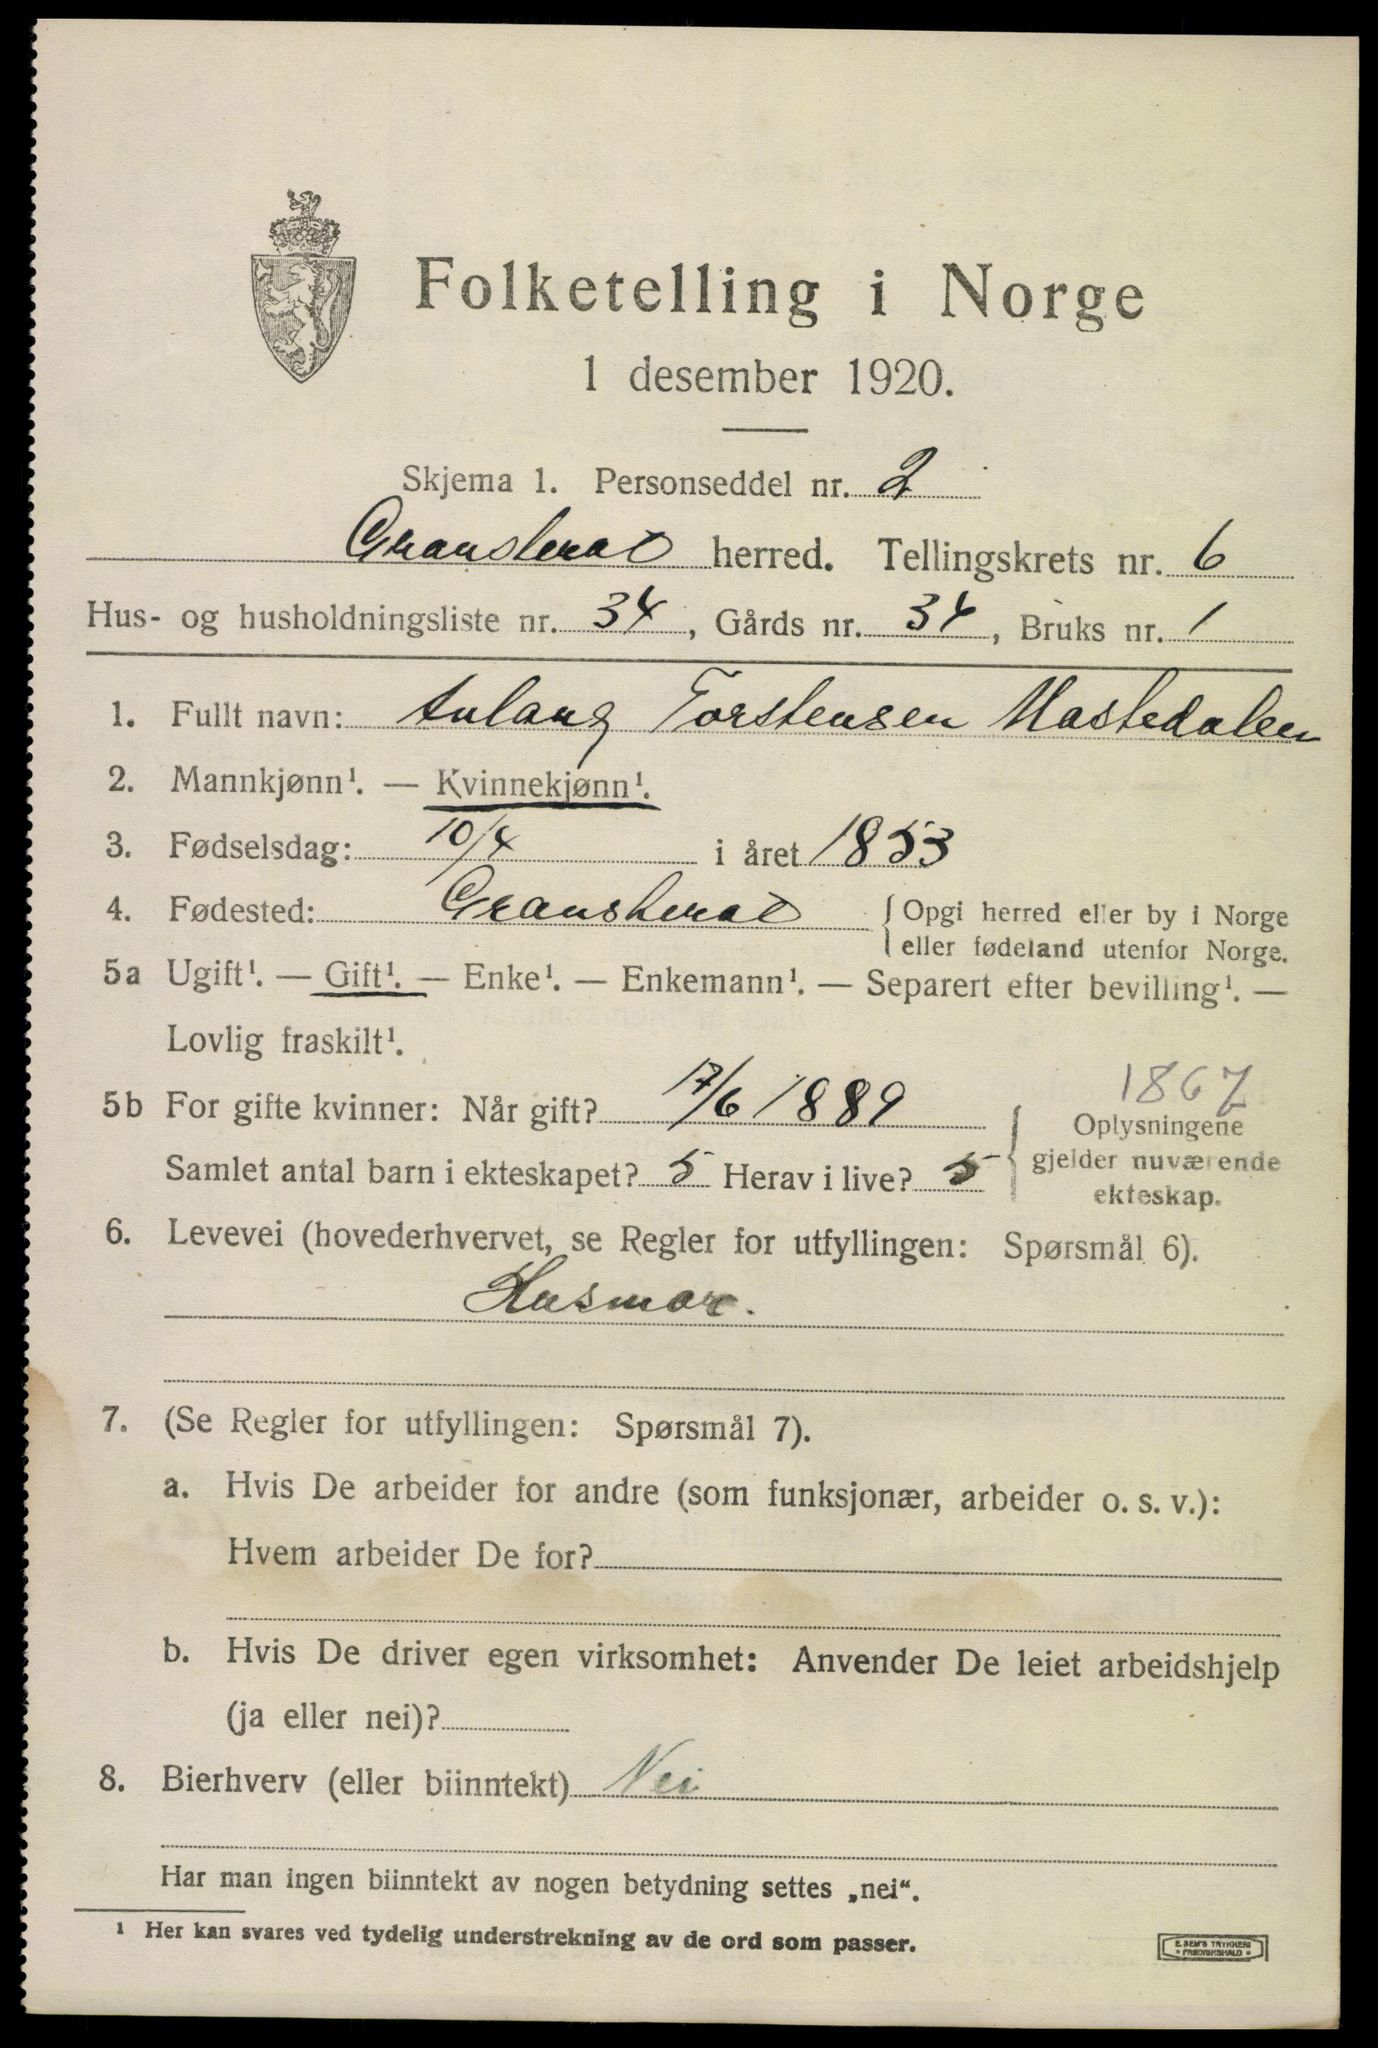 Folketelling i Norge
1 desember 1920.
Skjema 1. Personseddel nr. 2
Gransherad herred. Tellingskrets nr. 6
Hus- og husholdningsliste nr. 34, Gårds nr. 34, Bruks nr. 1
1. Fullt navn: Aslaug Torstensen Mastedalen
2. Mannkjønn¹. — Kvinnekjønn¹.
3. Fødselsdag: 10/4 i året 1853
4. Fødested: Gransherad { Opgi herred eller by i Norge
eller fødeland utenfor Norge.
5a Ugift¹. — Gift¹. — Enke¹. — Enkemann¹. — Separert efter bevilling¹. —
Lovlig fraskilt¹.
1867
5b For gifte kvinner: Når gift? 17/6 1889 { Oplysningene
gjelder nuværende
ekteskap.
Samlet antal barn i ekteskapet? 5 Herav i live? 5
6. Levevei (hovederhvervet, se Regler for utfyllingen: Spørsmål 6).
Husmor.
7. (Se Regler for utfyllingen: Spørsmål 7).
a. Hvis De arbeider for andre (som funksjonær, arbeider o. s. v.):
Hvem arbeider De for?
b. Hvis De driver egen virksomhet: Anvender De leiet arbeidshjelp
(ja eller nei)?
8. Bierhverv (eller biinntekt) Nei
Har man ingen biinntekt av nogen betydning settes „nei“.
¹ Her kan svares ved tydelig understrekning av de ord som passer.
E. SEM'S TRYKKERI
• FREDRIKSHALD •